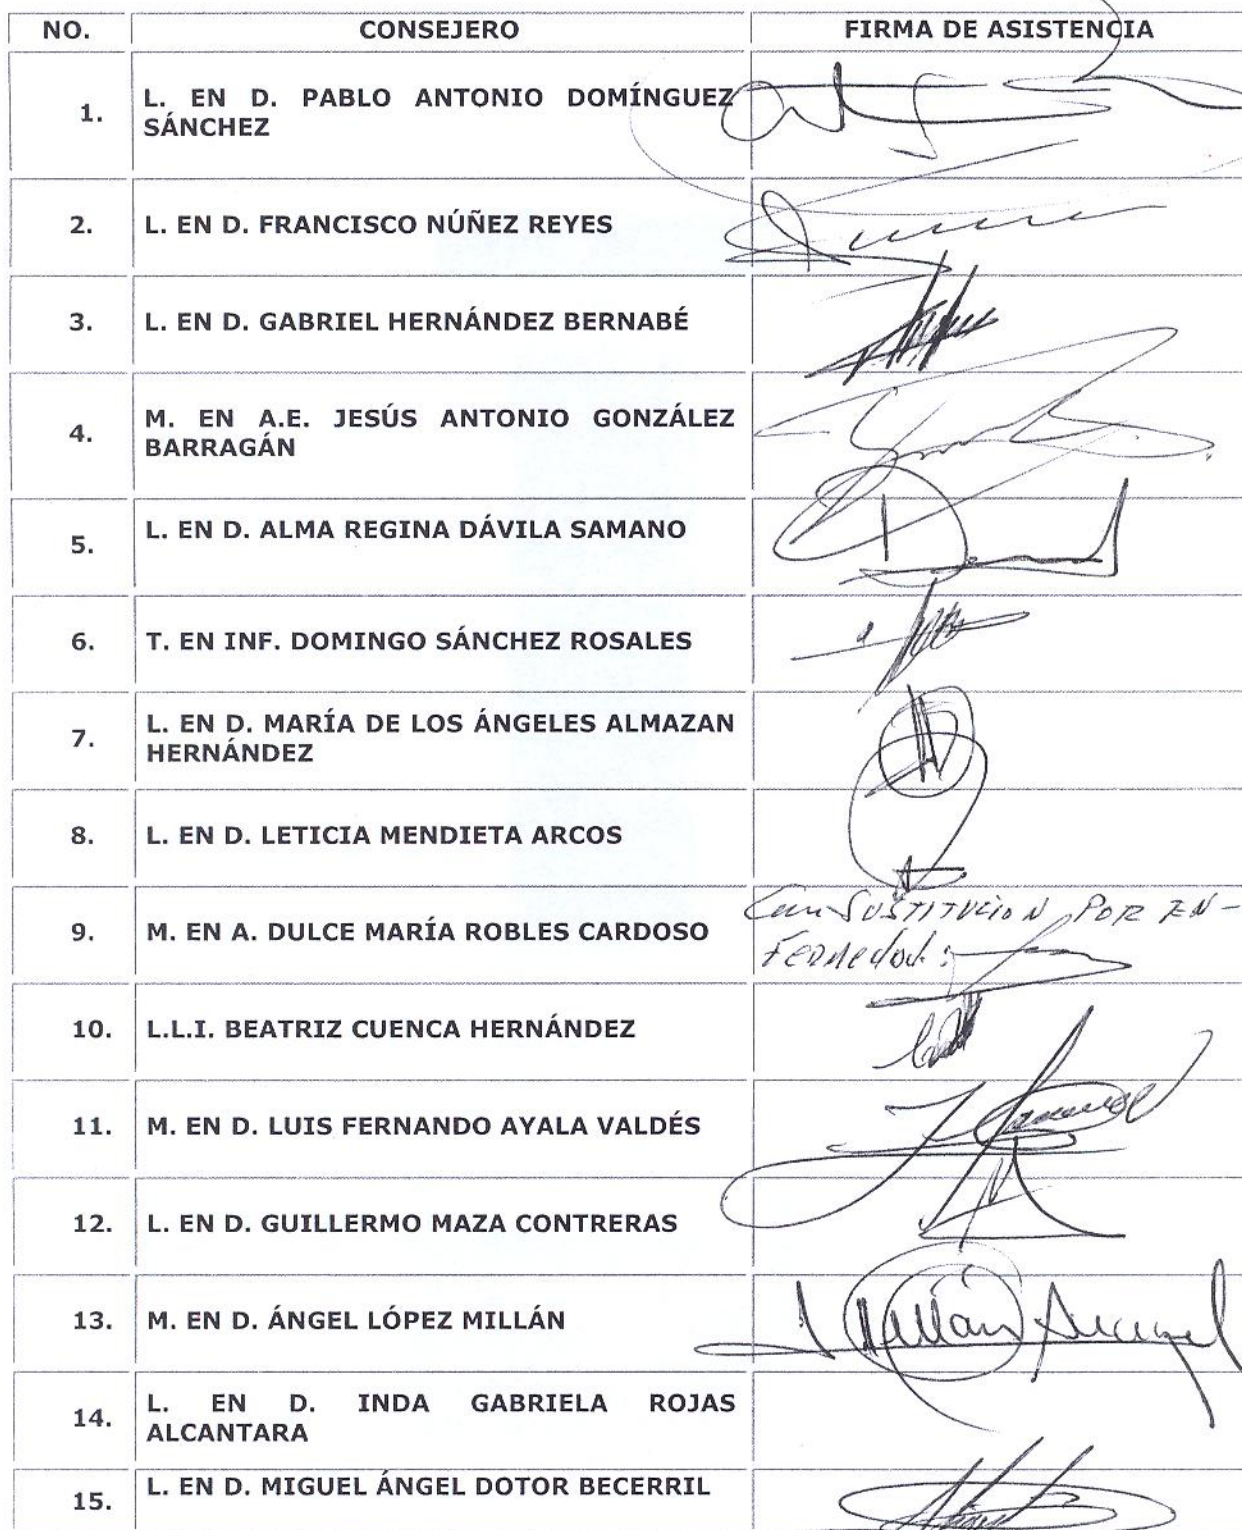 NO. CONSEJERO FIRMA DE ASISTENCIA
1. L. EN D. PABLO ANTONIO DOMÍNGUEZ
SÁNCHEZ
2. L. EN D. FRANCISCO NÚÑEZ REYES
3. L. EN D. GABRIEL HERNÁNDEZ BERNABÉ
4. M. EN A.E. JESÚS ANTONIO GONZÁLEZ
BARRAGÁN
5. L. EN D. ALMA REGINA DÁVILA SAMANO
6. T. EN INF. DOMINGO SÁNCHEZ ROSALES
7. L. EN D. MARÍA DE LOS ÁNGELES ALMAZAN
HERNÁNDEZ
8. L. EN D. LETICIA MENDIETA ARCOS
9. M. EN A. DULCE MARÍA ROBLES CARDOSO
SUSTITUCION POR EN-
FERMEdad.
10. L.L.I. BEATRIZ CUENCA HERNÁNDEZ
11. M. EN D. LUIS FERNANDO AYALA VALDÉS
12. L. EN D. GUILLERMO MAZA CONTRERAS
13. M. EN D. ÁNGEL LÓPEZ MILLÁN Millán
14. L. EN D. INDA GABRIELA ROJAS
ALCANTARA
15. L. EN D. MIGUEL ÁNGEL DOTOR BECERRIL